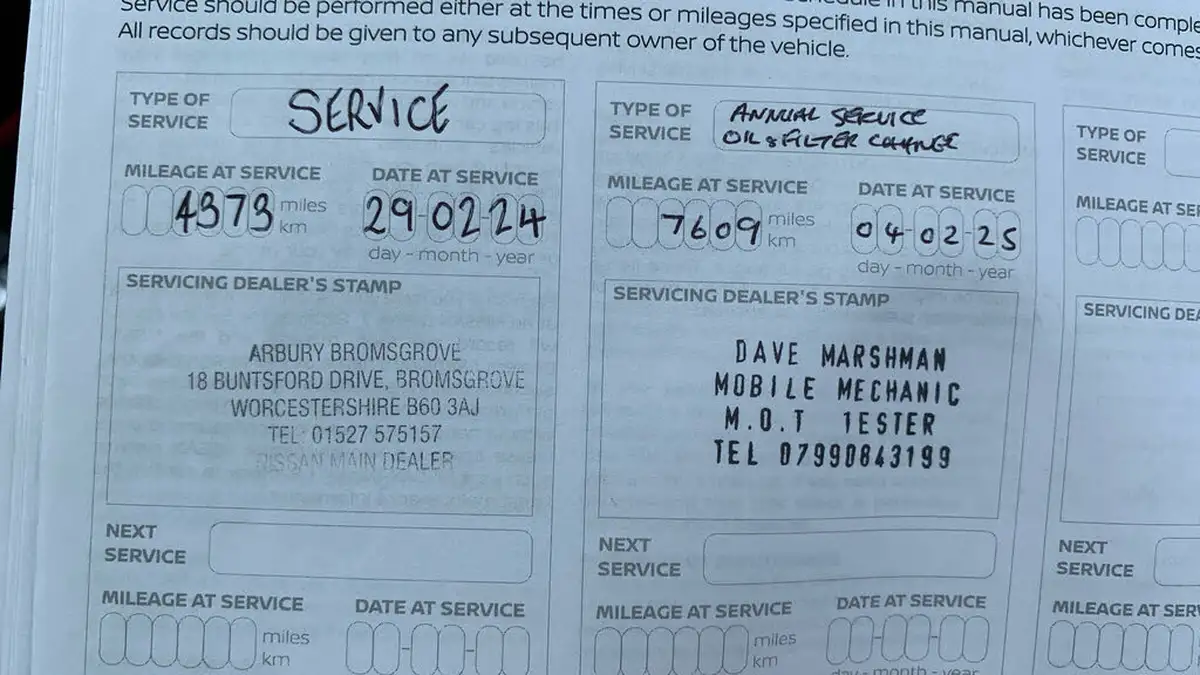 Service should be performed either at the times or mileages specified in this manual, whichever comes
All records should be given to any subsequent owner of the vehicle.
this manual has been
TYPE OF SERVICE
SERVICE
MILEAGE AT SERVICE
DATE AT SERVICE
4373 miles km
29-02-24
day - month - year
SERVICING DEALER'S STAMP
ARBURY BROMSGROVE
18 BUNTSFORD DRIVE, BROMSGROVE
WORCESTERSHIRE B60 3AJ
TEL: 01527 575157
NISSAN MAIN DEALER
NEXT SERVICE
MILEAGE AT SERVICE
DATE AT SERVICE
miles km
TYPE OF SERVICE
ANNUAL SERVICE
OIL & FILTER CHANGE
MILEAGE AT SERVICE
DATE AT SERVICE
7609 miles km
04-02-25
day - month - year
SERVICING DEALER'S STAMP
DAVE MARSHMAN
MOBILE MECHANIC
M.O.T 1ESTER
TEL 07990843199
NEXT SERVICE
MILEAGE AT SERVICE
DATE AT SERVICE
miles km
day - month - year
TYPE OF SERVICE
MILEAGE AT SE
SERVICING DEA
NEXT SERVICE
MILEAGE AT SER